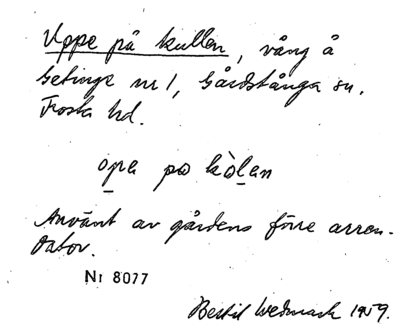 Uppe på kullen, vång å
Getinge nr 1, Gårdstånga sn.
Frosta hd.
opa po kòlan
Använt av gårdens förre arren-
dator.
Nr 8077
Bertil Wedmark 1959.